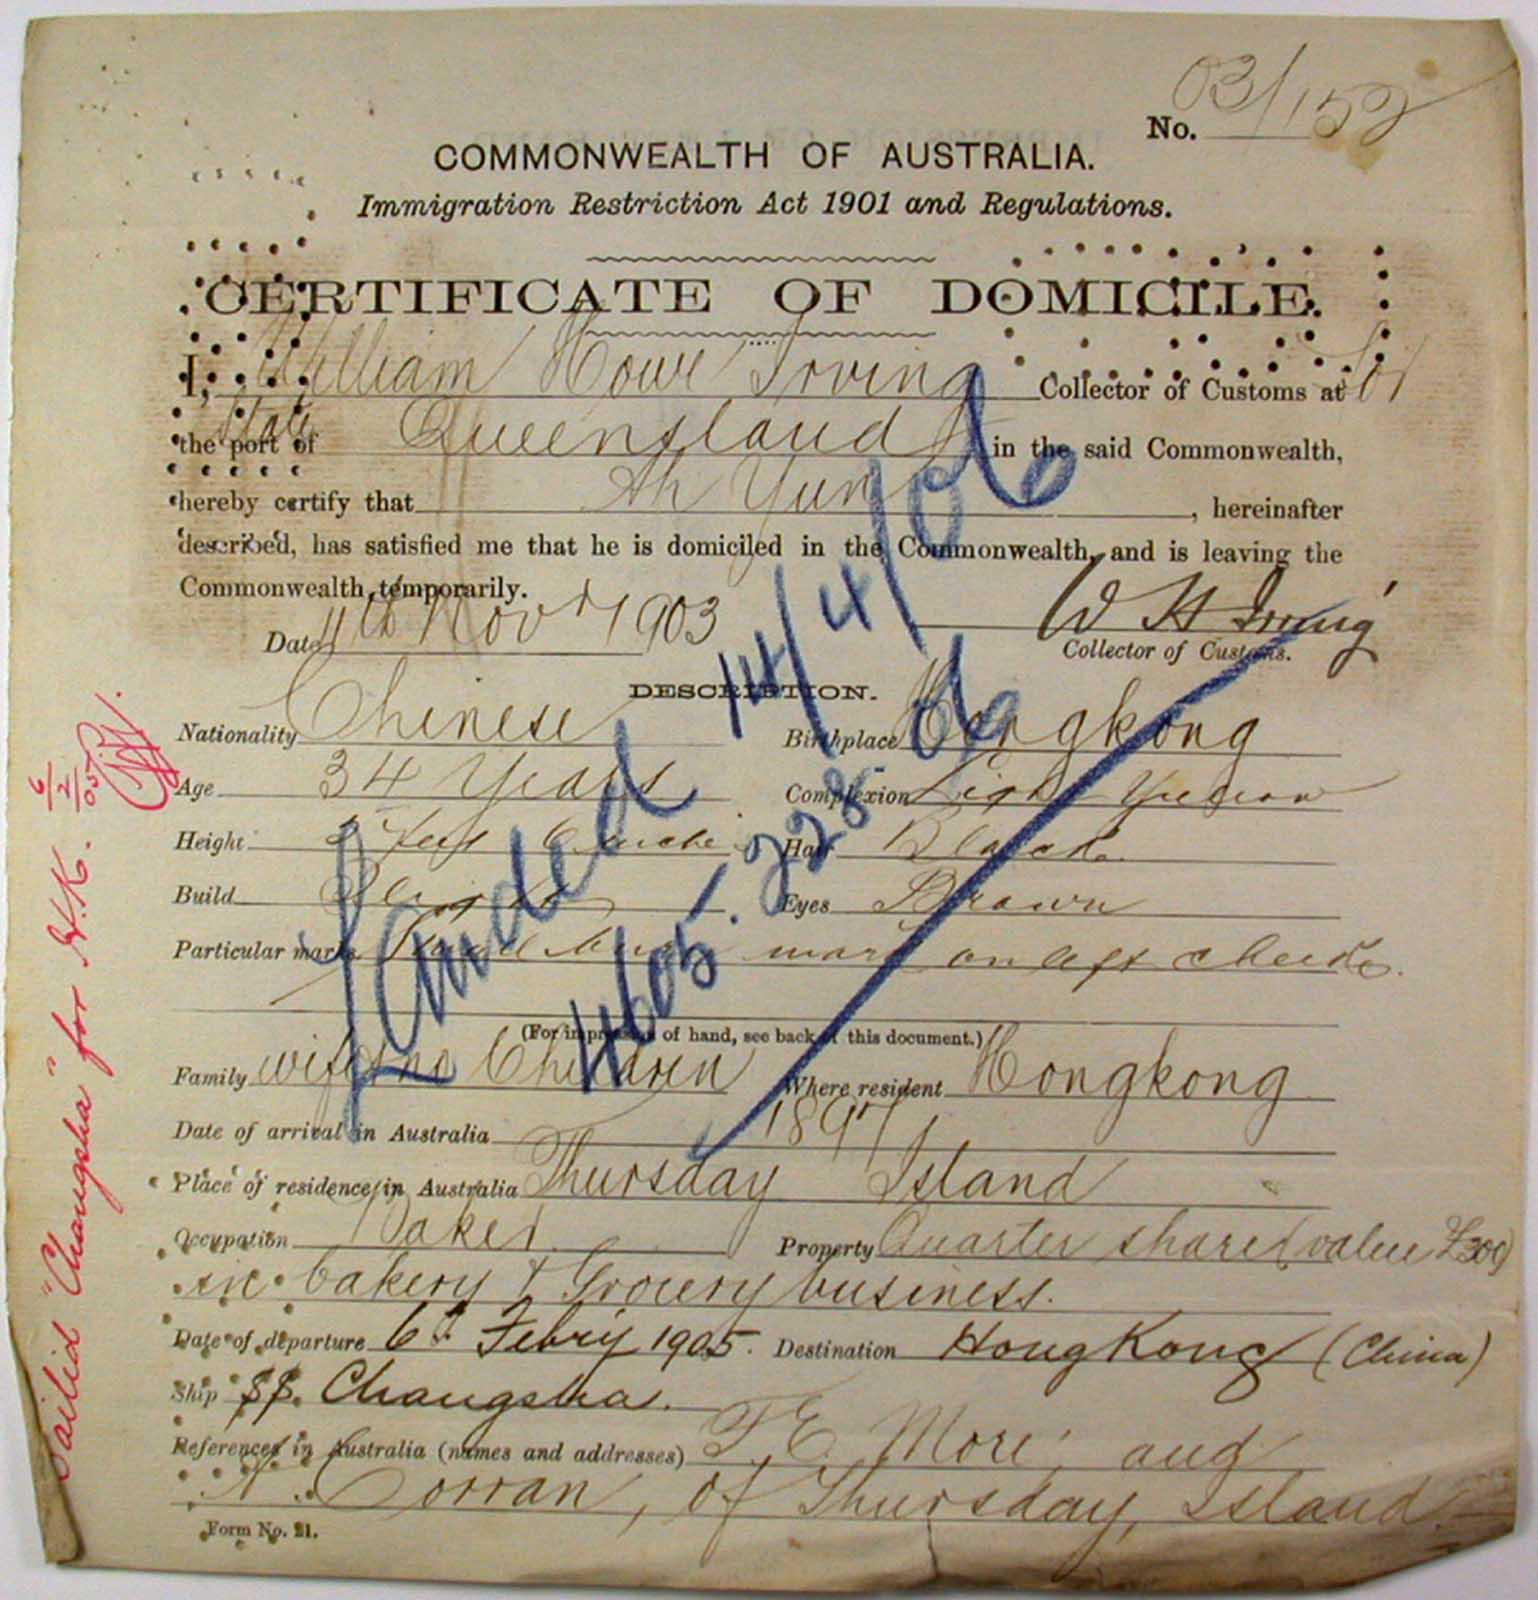 No. 03/152
COMMONWEALTH OF AUSTRALIA.
Immigration Restriction Act 1901 and Regulations.
CERTIFICATE OF DOMICILE.
I, William Howe Irving Collector of Customs at for
State
the port of Queensland in the said Commonwealth,
hereby certify that Ah Yun, hereinafter
described, has satisfied me that he is domiciled in the Commonwealth, and is leaving the
Commonwealth temporarily.
Date 11th Novr 1903
W H Irving
Collector of Customs.
DESCRIPTION.
Nationality Chinese Birthplace Hongkong
Age 34 Years Complexion Light Yellow
Height 5 feet 6 inches Hair Black
Build Slight Eyes Brown
Particular marks Small mark on left cheek.
(For impression of hand, see back of this document.)
Family wife no Children Where resident Hongkong
Date of arrival in Australia 1897
Place of residence in Australia Thursday Island
Occupation Baker Property Quarter share (value £300)
in bakery & Grocery business.
Date of departure 6th Febry 1905. Destination Hong Kong (China)
Ship SS. Changsha.
References in Australia (names and addresses) T E Moré and
Corran, of Thursday Island
Form No. 21.
Landed 14/4/06
Sailed "Changsha" for H.K. 6/2/05